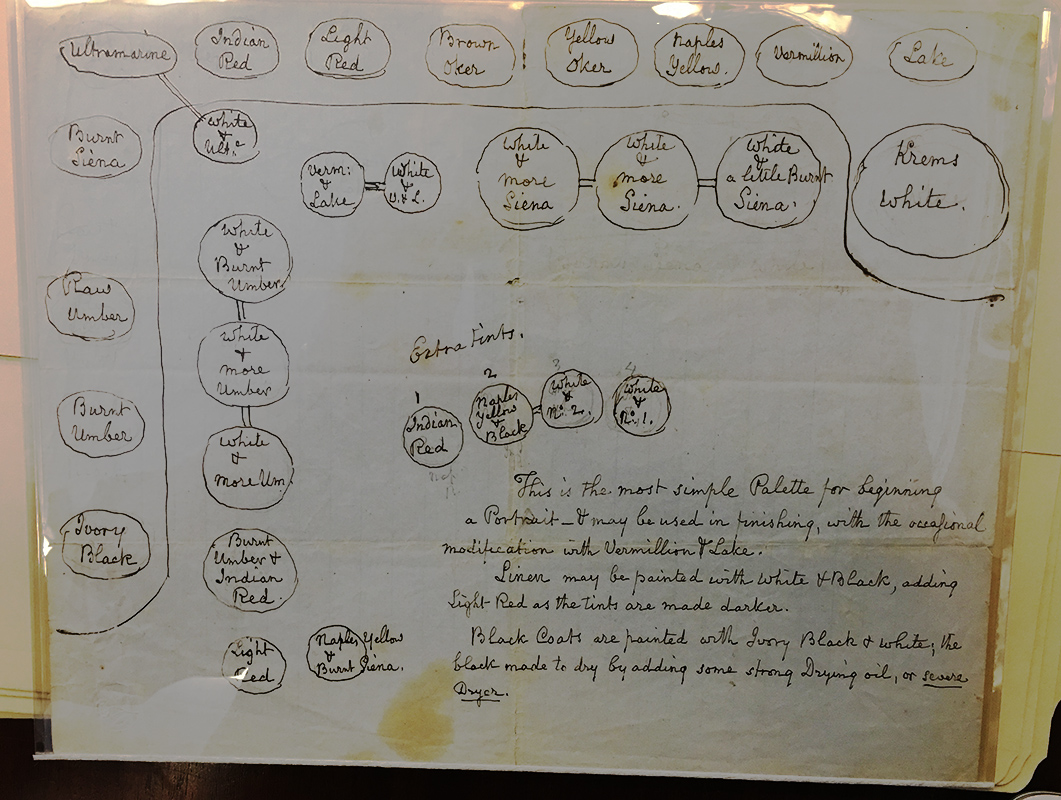 Ultramarine
Indian
Red
Light
Red
Brown
Oker
Yellow
Oker
Naples
Yellow.
Vermillion
Lake
Burnt
Siena
White
&
Ult.
Verm:
&
Lake
White
&
V. & L.
White
&
more
Siena
White
&
more
Siena.
White
&
a little Burnt
Siena.
Krems
White.
Raw
Umber
Burnt
Umber
Ivory
Black
White
&
Burnt
Umber
White
&
more
Umber
White
&
more Um
Burnt
Umber &
Indian
Red.
Light
Red
Naples Yellow
&
Burnt Siena.
Extra Tints.
1
Indian
Red
2
Naples
Yellow
&
Black
3
White
&
No. 2.
4
White
&
No. 1.
This is the most simple Palette for beginning
a Portrait — & may be used in finishing, with the occasional
modification with Vermillion & Lake.
Linen may be painted with White & Black, adding
Light Red as the tints are made darker.
Black Coats are painted with Ivory Black & White; the
black made to dry by adding some strong Drying oil, or severe
Dryer.